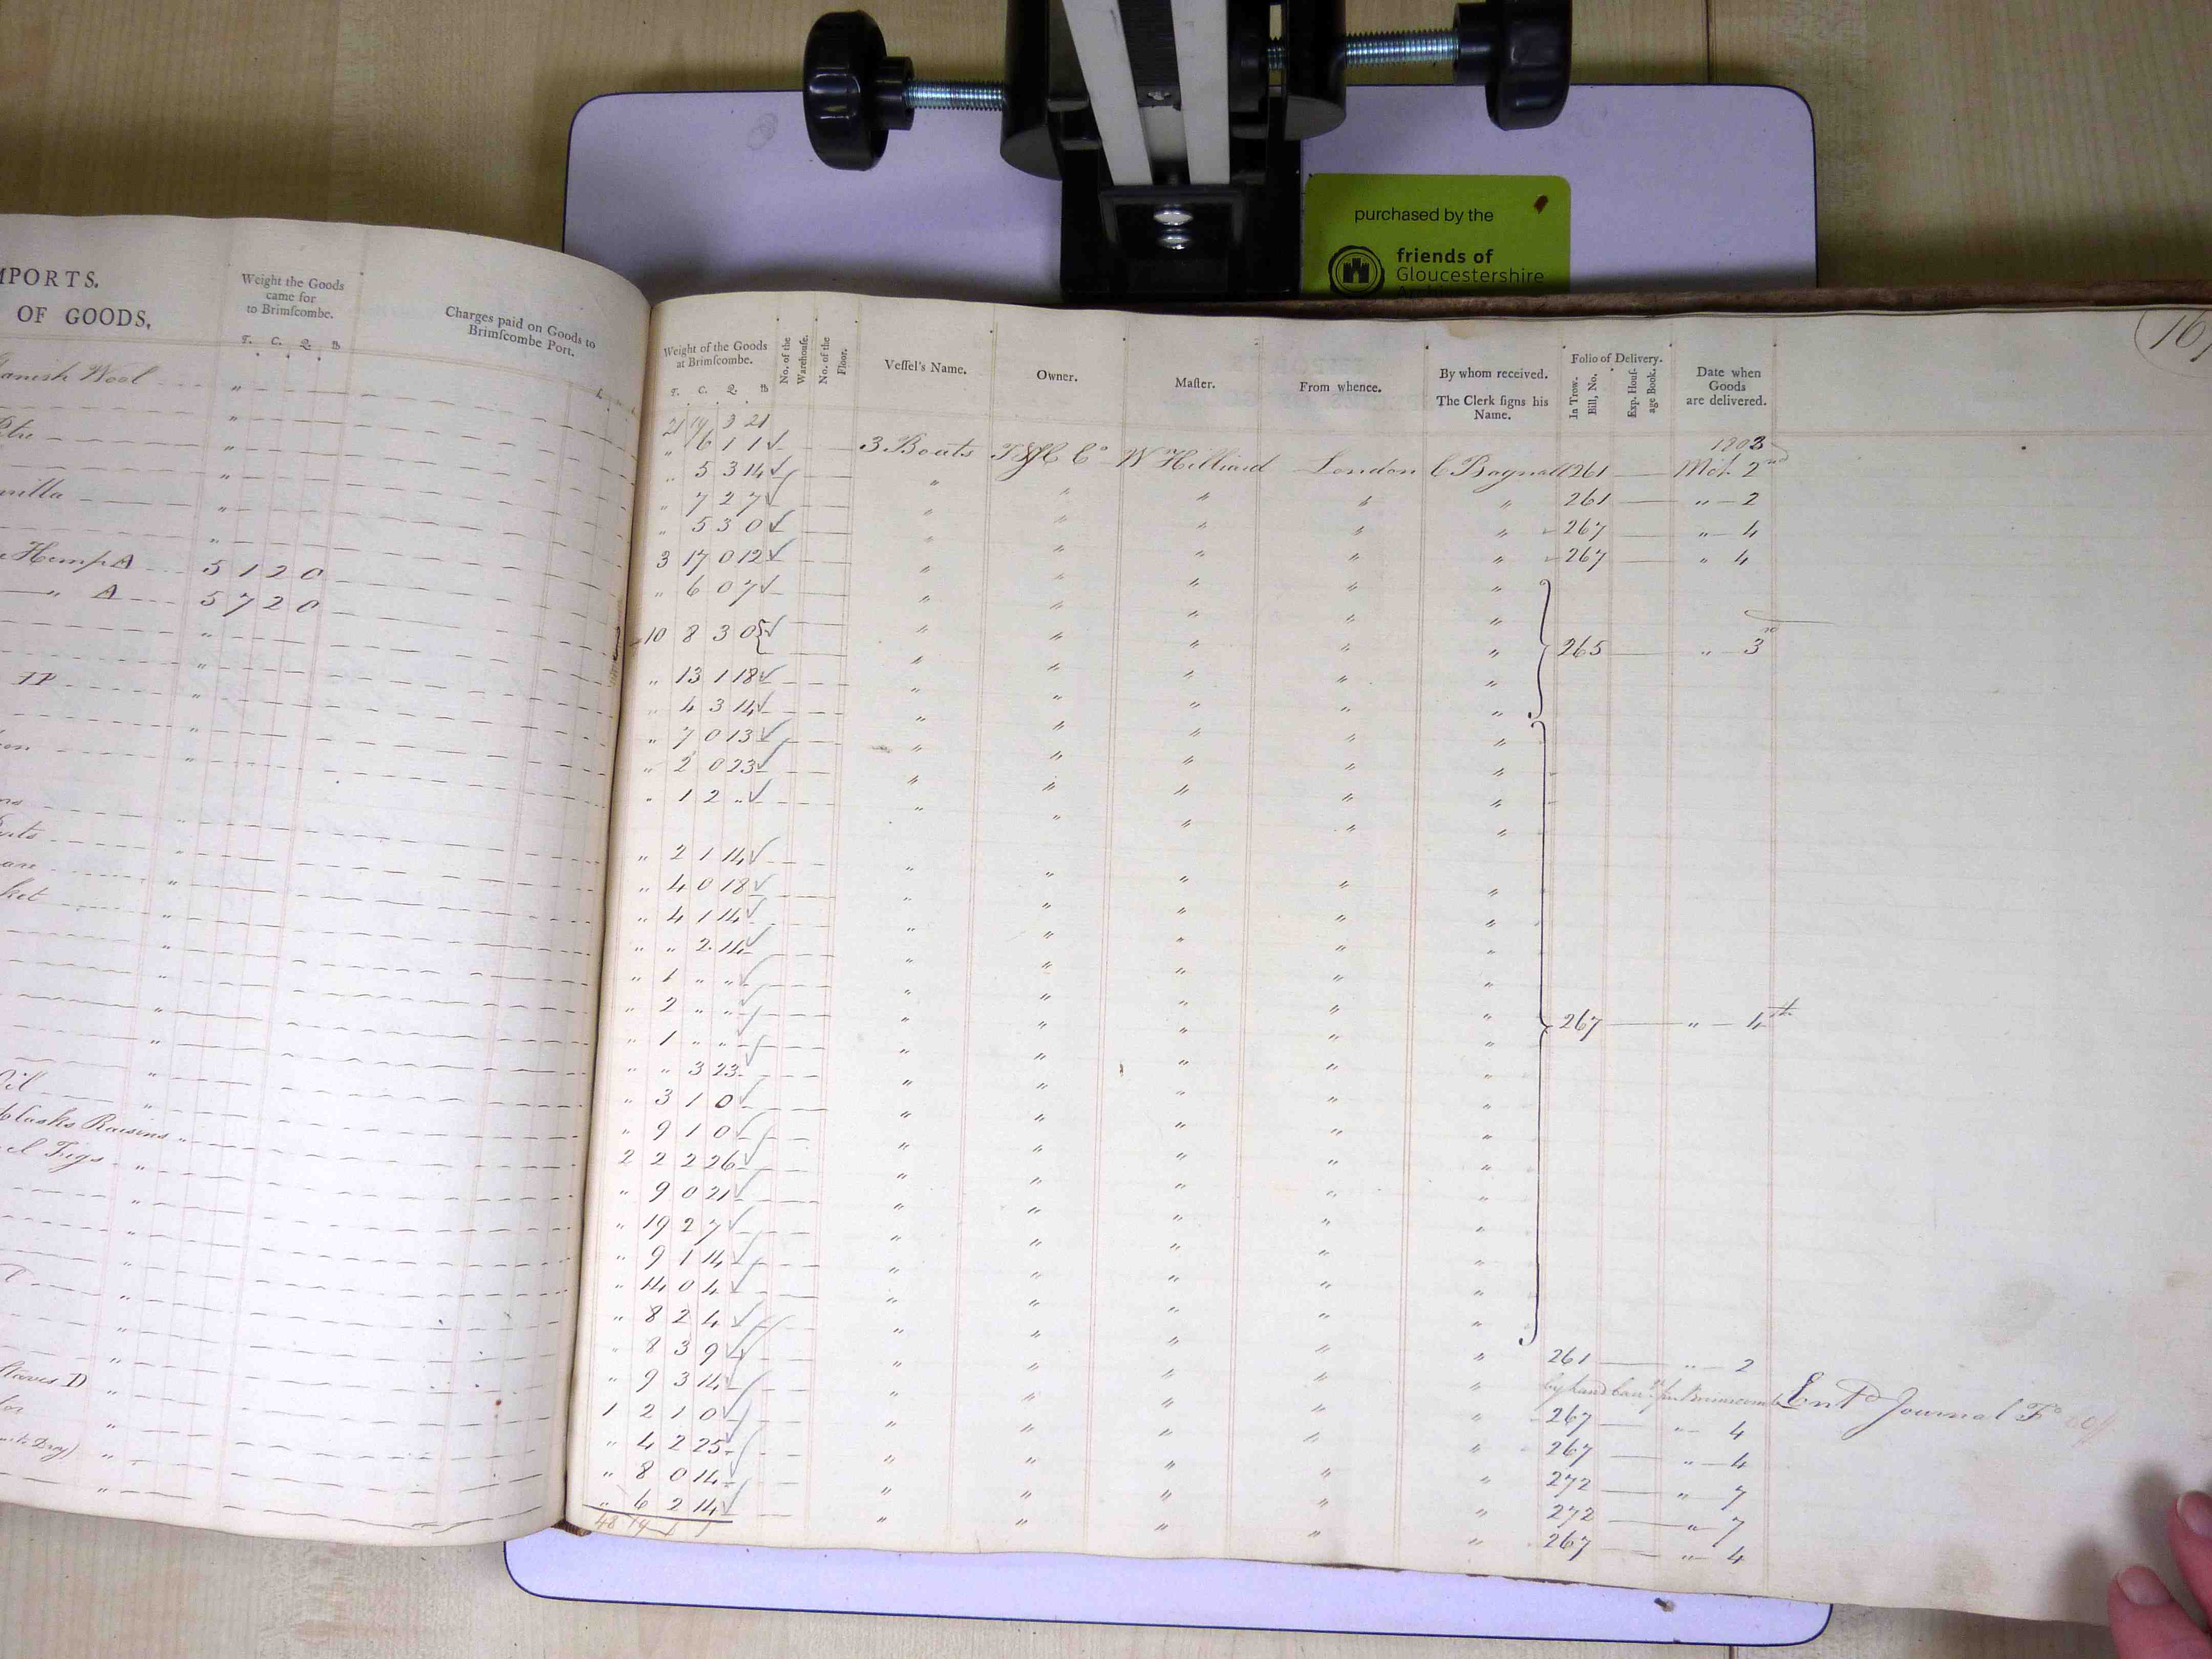 purchased by the
friends of
Gloucestershire
MPORTS.
OF GOODS,
Weight the Goods
came for
to Brimſcombe.
T. C. Q. ℔
Charges paid on Goods to
Brimſcombe Port.
anish Wool
"
"
"
nilla "
"
Hemp A 5 12 0
" A 5 7 2 0
"
"
TP "
"
"
"
"
"
ket "
"
"
"
"
Oil "
Casks Raisins "
el Figs "
"
"
"
"
"
Staves D "
for "
"
"
Weight of the Goods
at Brimſcombe.
T. C. Q. ℔
No. of the
Warehouſe.
No. of the
Floor.
Veſſel's Name.
Owner.
Maſter.
From whence.
By whom received.
The Clerk ſigns his
Name.
Folio of Delivery.
In Trow.
Bill, No.
Exp. Houſ-
age Book.
Date when
Goods
are delivered.
21 19 3 21
1803
" 6 1 1 ✓ 3 Boats W Hilliard London C Bagnall 261 2nd
" 5 3 14 ✓ " " " " " 261 " 2
" 7 2 7 ✓ " " " " " 267 " 4
" 5 3 0 ✓ " " " " " 267 " 4
3 17 0 12 ✓ " " " " "
" 6 0 7 ✓ " " " " "
10 8 3 0 ✓ " " " " " 265 " 3
" 13 1 18 ✓ " " " " "
" 4 3 14 ✓ " " " " "
" 7 0 13 ✓ " " " " "
" 2 0 23 ✓ " " " " "
" 1 2 " ✓ " " " " "
" 2 1 14 ✓ " " " " "
" 4 0 18 ✓ " " " " "
" 4 1 14 ✓ " " " " "
" " 2 14 ✓ " " " " "
" 1 " " ✓ " " " " "
" 2 " " ✓ " " " " " 267 " 4th
" 1 " " ✓ " " " " "
" " 3 23 ✓ " " " " "
" 3 1 0 ✓ " " " " "
" 9 1 0 ✓ " " " " "
2 2 2 26 ✓ " " " " "
" 9 0 21 ✓ " " " " "
" 19 2 7 ✓ " " " " "
" 9 1 14 ✓ " " " " "
" 14 0 4 ✓ " " " " "
" 8 2 4 ✓ " " " " "
" 8 3 9 ✓ " " " " " 261 " 2
" 9 3 14 ✓ " " " " " Entd Journal Fo
1 2 1 0 ✓ " " " " " 267 " 4
" 4 2 25 ✓ " " " " " 267 " 4
" 8 0 14 ✓ " " " " " 272 " 7
" 6 2 14 ✓ " " " " " 272 " 7
267 " 4